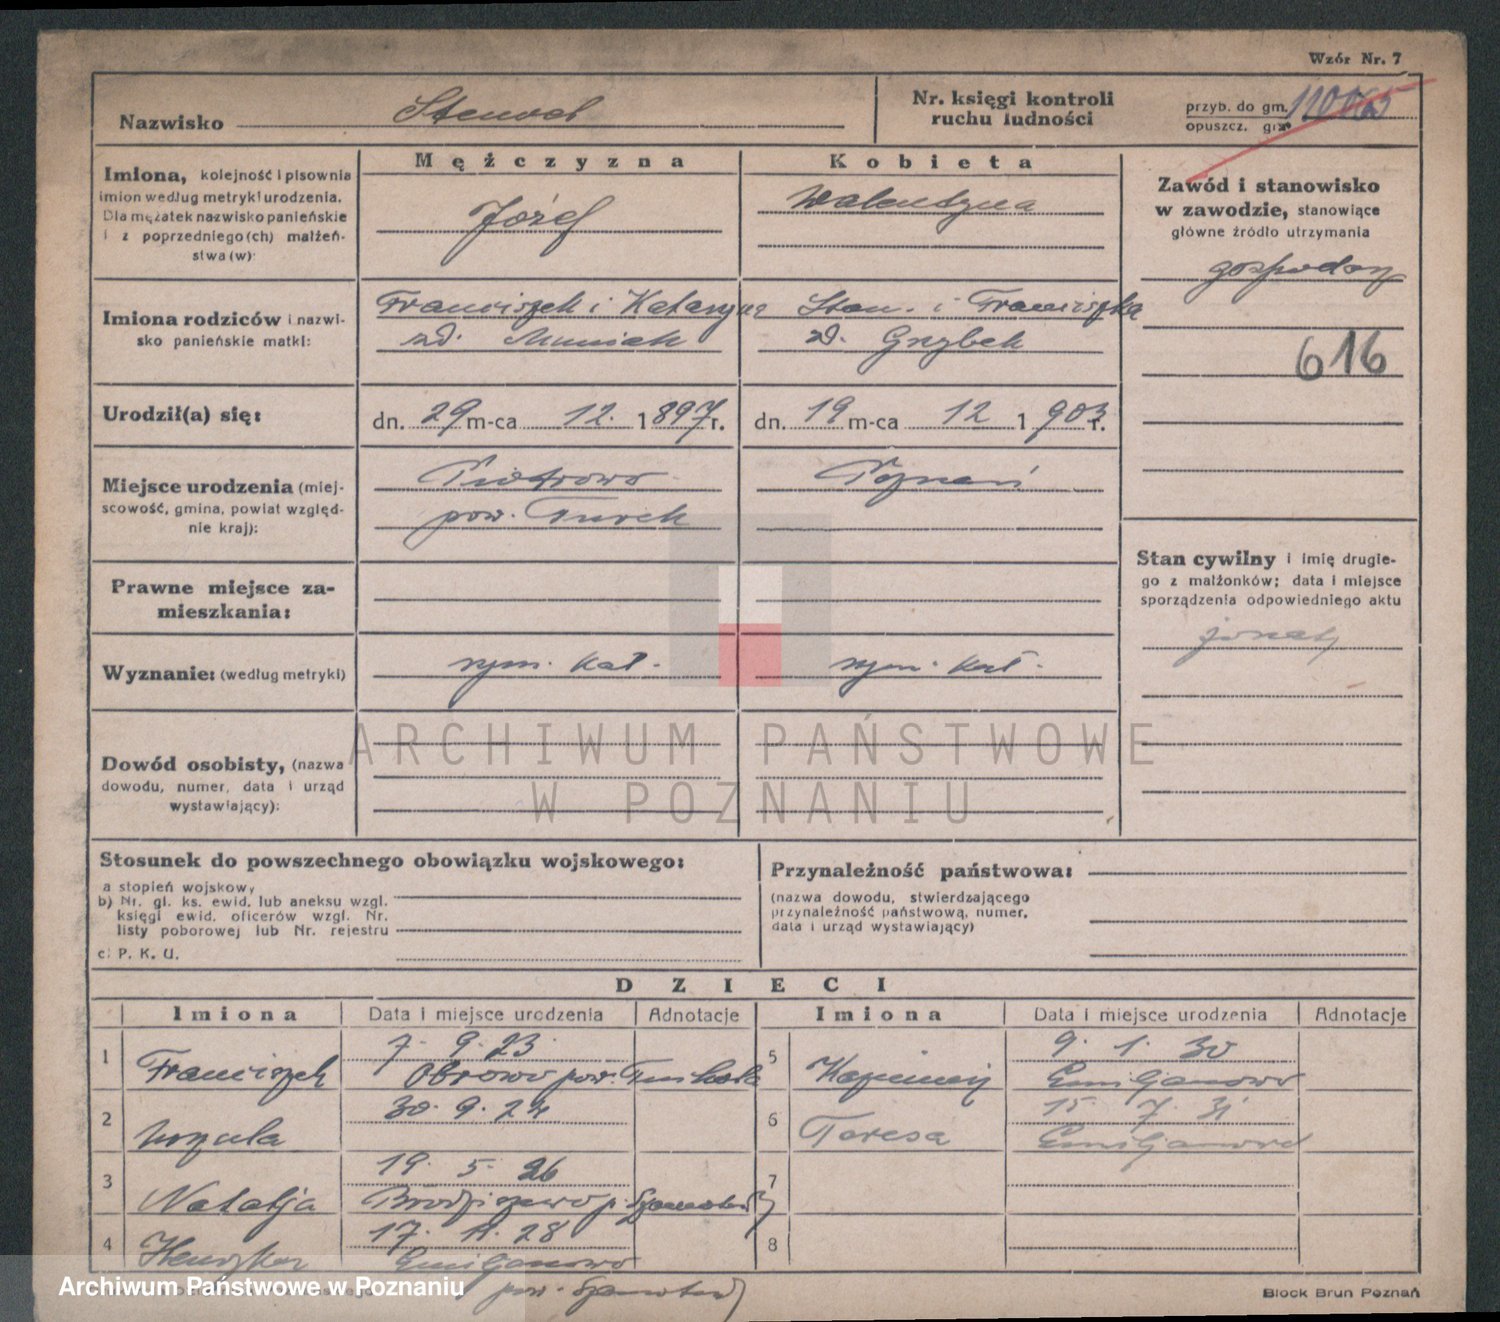 Wzór Nr. 7
Nazwisko
Nr. księgi kontroli
ruchu ludności
przyb. do gm.
opuszcz. gm.
Mężczyzna
Kobieta
Imiona, kolejność i pisownia
imion według metryki urodzenia.
Dla mężatek nazwisko panieńskie
i z poprzedniego(ch) małżeń-
stwa(w):
Józef
Walentyna
Zawód i stanowisko
w zawodzie, stanowiące
główne źródło utrzymania
gospodarz
616
Imiona rodziców i nazwi-
sko panieńskie matki:
Franciszek i Katarzyna
zd.
Stan. i Franciszka
zd. Grzybek
Urodził(a) się:
dn. 29 m-ca 12. 1897 r.
dn. 19 m-ca 12 1903 r.
Miejsce urodzenia (miej-
scowość, gmina, powiat względ-
nie kraj):
Piotrowo
pow. Turek
Poznań
Prawne miejsce za-
mieszkania:
Stan cywilny i imię drugie-
go z małżonków; data i miejsce
sporządzenia odpowiedniego aktu
żonaty
Wyznanie: (według metryki)
rzym. kat.
rzym. kat.
Dowód osobisty, (nazwa
dowodu, numer, data i urząd
wystawiający):
ARCHIWUM PAŃSTWOWE
W POZNANIU
Stosunek do powszechnego obowiązku wojskowego:
a stopień wojskowy
b) Nr. gl. ks. ewid. lub aneksu wzgl.
księgi ewid. oficerów wzgl. Nr.
listy poborowej lub Nr. rejestru
c: P. K. U.
Przynależność państwowa:
(nazwa dowodu, stwierdzającego
przynależność państwową, numer,
data i urząd wystawiający)
DZIECI
Imiona
Data i miejsce urodzenia
Adnotacje
Imiona
Data i miejsce urodzenia
Adnotacje
1 Franciszek
7. 9. 23.
Obrowo pow.
2 Urszula
30. 9. 24
3 Natalja
19. 5. 26
4
17. 28
Emiljanowo
pow.
5 Kazimierz
9. 1. 30
Emiljanowo
6 Teresa
15. 7. 31
Emiljanowo
7
8
Archiwum Państwowe w Poznaniu
Block Brun Poznań